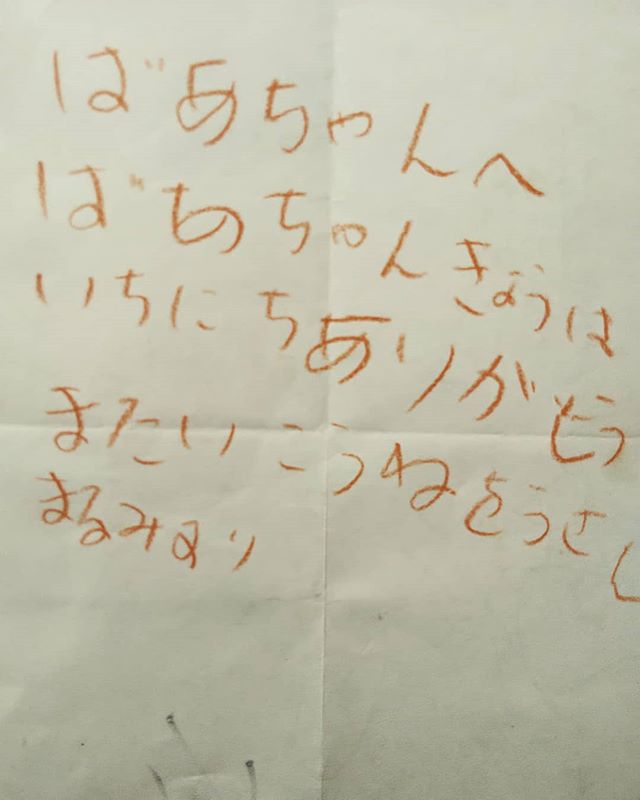 ばあちゃんへ
ばあちゃんきょうは
いちにちありがとう
またいこうねをうさし
まるみより